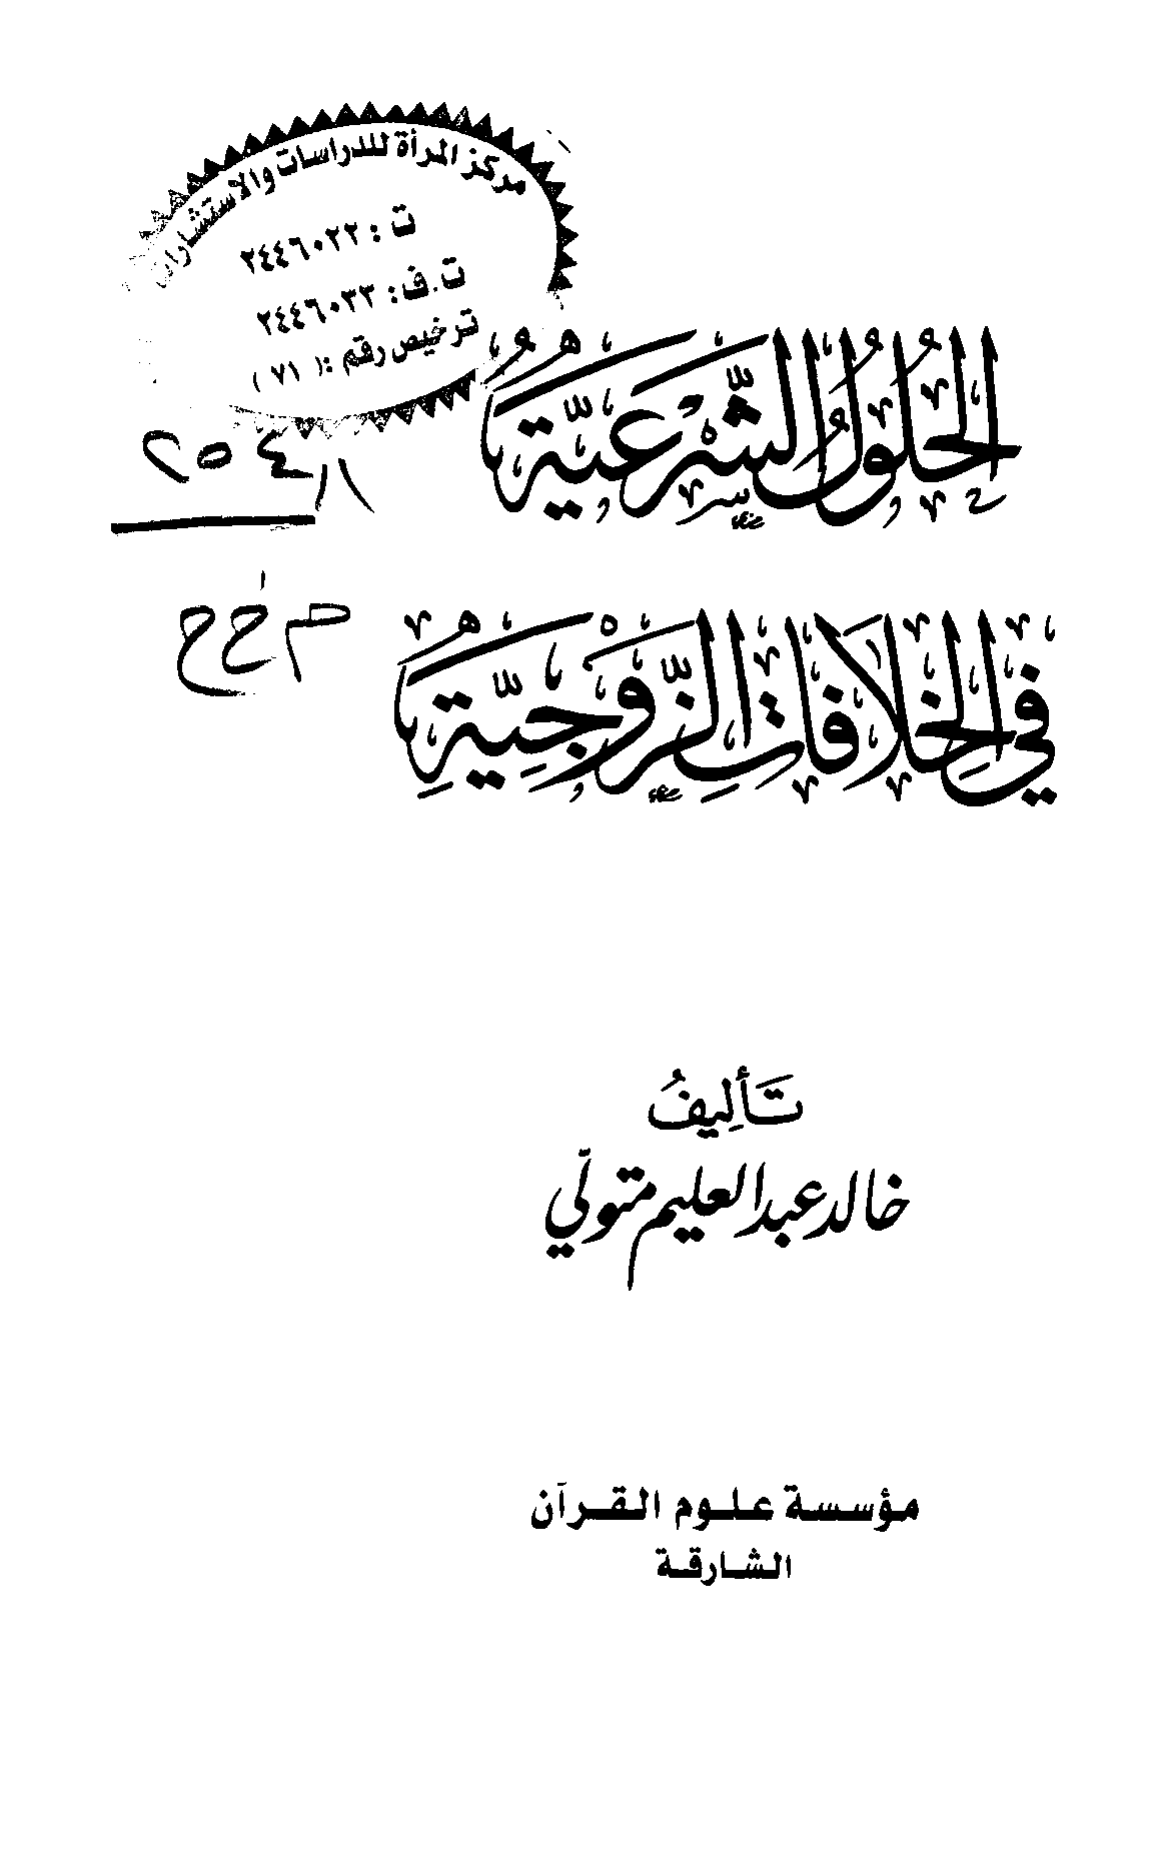 مركز المرأة للدراسات والاستشارات
ت : ٢٤٤٦٠٢٢
ت.ف: ٢٤٤٦٠٣٣
ترخيص رقم :( ٧١ )
الحُلُولُ الشَّرْعِيَّةُ
فِي الخِلَافَاتِ الزَّوْجِيَّةِ
تَأليفُ
خالد عبد العليم متولّي
مؤسسة علوم القرآن
الشارقة